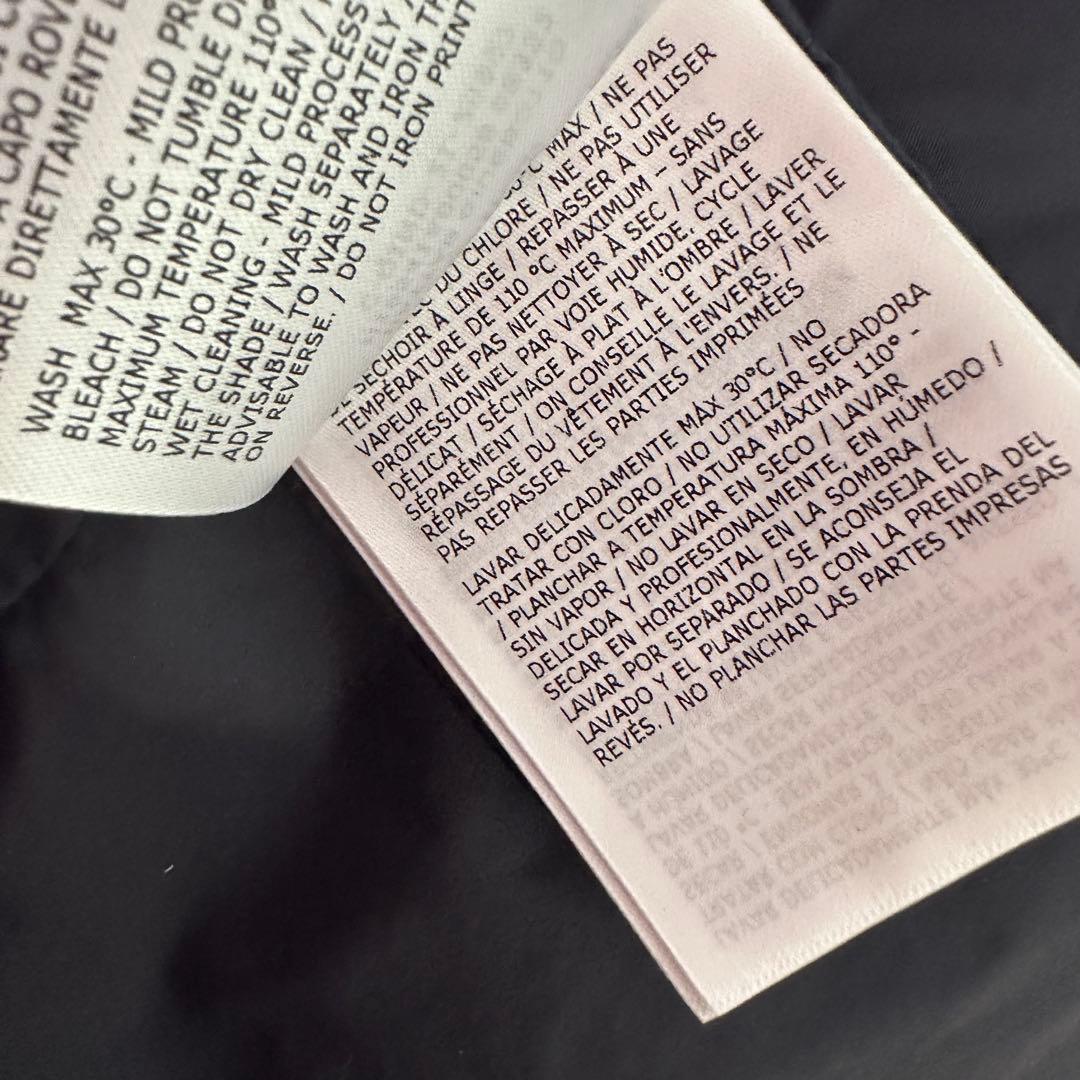 A CAPO ROVE
RARE DIRETTAMENTE L
WASH MAX 30°C - MILD PR
BLEACH / DO NOT TUMBLE D
MAXIMUM TEMPERATURE 110°
STEAM / DO NOT DRY CLEAN /
WET CLEANING - MILD PROCESS
THE SHADE / WASH SEPARATELY /
ADVISABLE TO WASH AND IRON TH
ON REVERSE. / DO NOT IRON PRINT
MAX / NE PAS
DU CHLORE / NE PAS UTILISER
SÉCHOIR À LINGE / REPASSER À UNE
TEMPÉRATURE DE 110 °C MAXIMUM – SANS
VAPEUR / NE PAS NETTOYER À SEC / LAVAGE
PROFESSIONNEL PAR VOIE HUMIDE, CYCLE
DÉLICAT / SÉCHAGE À PLAT À L'OMBRE / LAVER
SÉPARÉMENT / ON CONSEILLE LE LAVAGE ET LE
RÉPASSAGE DU VÊTEMENT À L'ENVERS. / NE
PAS REPASSER LES PARTIES IMPRIMÉES
LAVAR DELICADAMENTE MAX 30°C / NO
TRATAR CON CLORO / NO UTILIZAR SECADORA
/ PLANCHAR A TEMPERATURA MÁXIMA 110° -
SIN VAPOR / NO LAVAR EN SECO / LAVAR
DELICADA Y PROFESIONALMENTE, EN HÚMEDO /
SECAR EN HORIZONTAL EN LA SOMBRA /
LAVAR POR SEPARADO / SE ACONSEJA EL
LAVADO Y EL PLANCHADO CON LA PRENDA DEL
REVÉS. / NO PLANCHAR LAS PARTES IMPRESAS